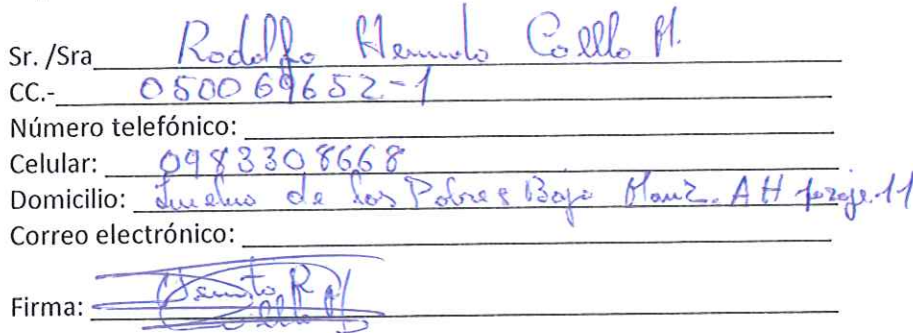 Sr. /Sra Rodolfo Coello M.
CC.- 050069652-1
Número telefónico:
Celular: 0983308668
Domicilio: de los Pobres Bajo Manz. AH pasaje.11
Correo electrónico:
Firma: